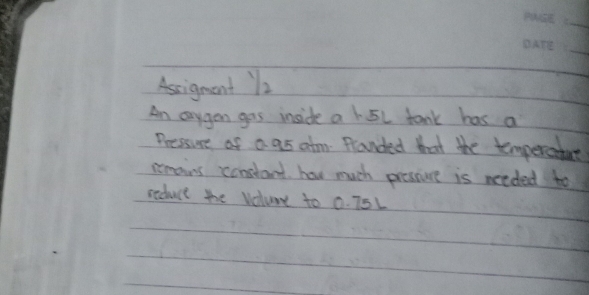 PAGE :
DATE :
Assigment 1/2
An oxygen gas inside a 1.5L tank has a
Pressure of 0.95 atm. Provided that the temperature
remains constant. how much pressure is needed to
reduce the Volume to 0.75L